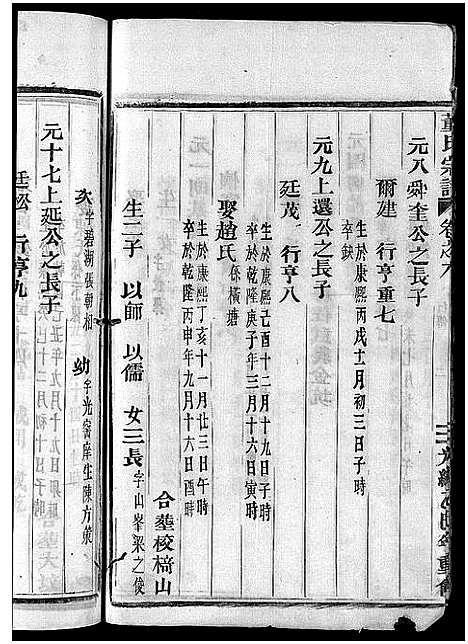 氏宗譜
元八舜奎公之長子
爾建　行亨重七
生於康熙丙戌十一月初三日子時
卒缺
元九上還公之長子
廷茂　行亨八
生於康熙己酉十二月十九日子時
卒於乾隆庚子年三月十六日寅時
娶趙氏 係橫塘
生於康熙丁亥十一月廿三日午時
卒於乾隆丙申年九月十六日時
合塟校樌山
生二子　以師　以儒　女三長 字山峯梁之俊
次 字碧湖張朝相　幼 字光窖庠生陳方策
元十七上延公之長子
行亨九
年九月十九日卯
巳十二月初十日子時